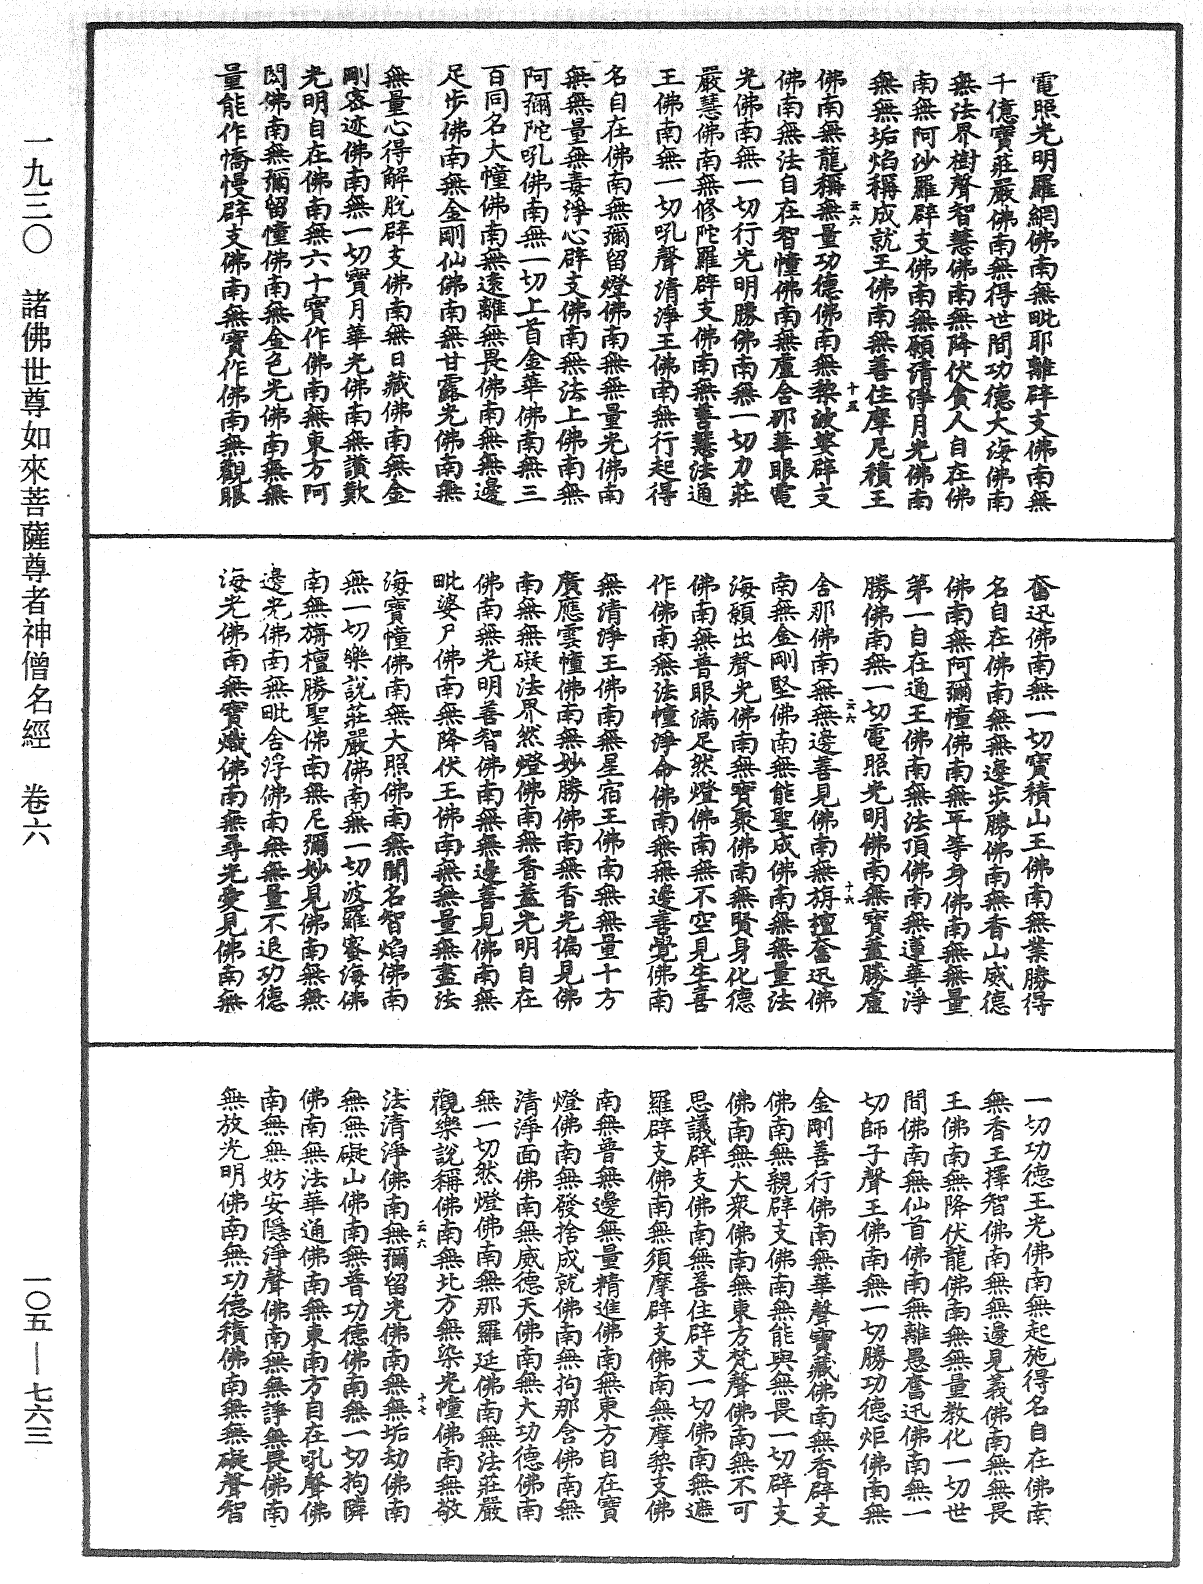 電照光明羅網佛南無毗耶離辟支佛南無
千億寶莊嚴佛南無得世間功德大海佛南
無法界樹聲智慧佛南無降伏貪人自在佛
南無阿沙羅辟支佛南無願清淨月光佛南
無無垢焰稱成就王佛南無善住摩尼積王
佛南無龍稱無量功德佛南無黎波婆辟支
佛南無法自在智幢佛南無盧舍那華眼電
光佛南無一切行光明勝佛南無一切力莊
嚴慧佛南無修陀羅辟支佛南無善慧法通
王佛南無一切吼聲清淨王佛南無行起得
名自在佛南無彌留燈佛南無無量光佛南
無無量無毒淨心辟支佛南無法上佛南無
阿彌陀吼佛南無一切上首金華佛南無三
百同名大幢佛南無遠離無畏佛南無無邊
足步佛南無金剛仙佛南無甘露光佛南無
無量心得解脫辟支佛南無日藏佛南無金
剛密迹佛南無一切寶月華光佛南無讚歎
光明自在佛南無六十寶作佛南無東方阿
閦佛南無彌留幢佛南無金色光佛南無無
量能作憍慢辟支佛南無寶作佛南無觀眼
云六
十五
奮迅佛南無一切寶積山王佛南無業勝得
名自在佛南無無邊步勝佛南無香山威德
佛南無阿彌幢佛南無平等身佛南無無量
第一自在通王佛南無法頂佛南無蓮華淨
勝佛南無一切電照光明佛南無寶蓋勝盧
舍那佛南無無邊善見佛南無旃檀奮迅佛
南無金剛堅佛南無能聖成佛南無無量法
海願出聲光佛南無寶聚佛南無賢身化德
佛南無普眼滿足然燈佛南無不空見生喜
作佛南無法幢淨命佛南無無邊善覺佛南
無清淨王佛南無星宿王佛南無無量十方
廣應雲幢佛南無妙勝佛南無香光徧見佛
南無無礙法界然燈佛南無香蓋光明自在
佛南無光明善智佛南無無邊善見佛南無
毗婆尸佛南無降伏王佛南無無量無盡法
海寶幢佛南無大照佛南無聞名智焰佛南
無一切樂說莊嚴佛南無一切波羅蜜海佛
南無旃檀勝聖佛南無尼彌妙見佛南無無
邊光佛南無毗舍浮佛南無無量不退功德
海光佛南無寶熾佛南無尋光愛見佛南無
云六
十六
一切功德王光佛南無起施得名自在佛南
無香王擇智佛南無無邊見義佛南無無畏
王佛南無降伏龍佛南無無量教化一切世
間佛南無仙首佛南無離愚奮迅佛南無一
切師子聲王佛南無一切勝功德炬佛南無
金剛善行佛南無華聲寶藏佛南無香辟支
佛南無親辟支佛南無能與無畏一切辟支
佛南無大衆佛南無東方梵聲佛南無不可
思議辟支佛南無善住辟支一切佛南無遮
羅辟支佛南無須摩辟支佛南無摩黎支佛
南無普無邊無量精進佛南無東方自在寶
燈佛南無發捨成就佛南無拘那含佛南無
清淨面佛南無威德天佛南無大功德佛南
無一切然燈佛南無那羅延佛南無法莊嚴
觀樂說稱佛南無北方無染光幢佛南無敬
法清淨佛南無彌留光佛南無無垢劫佛南
無無礙山佛南無普功德佛南無一切拘隣
佛南無法華通佛南無東南方自在吼聲佛
南無無妨安隱淨聲佛南無無諍無畏佛南
無放光明佛南無功德積佛南無無礙聲智
云六
十七
一九三〇　諸佛世尊如來菩薩尊者神僧名經　卷六
一〇五—七六三